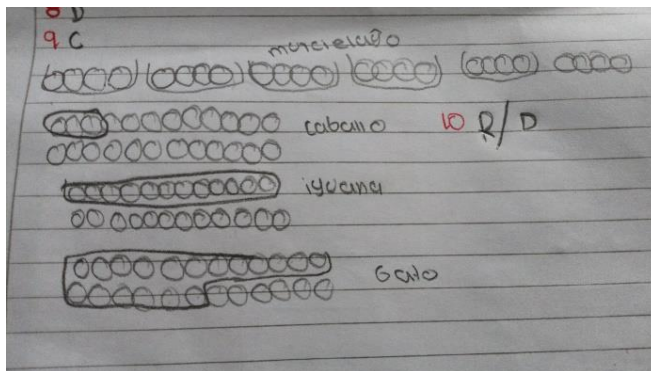 8 D
9 C
murcielago
caballo 10 R/D
iguana
Gato